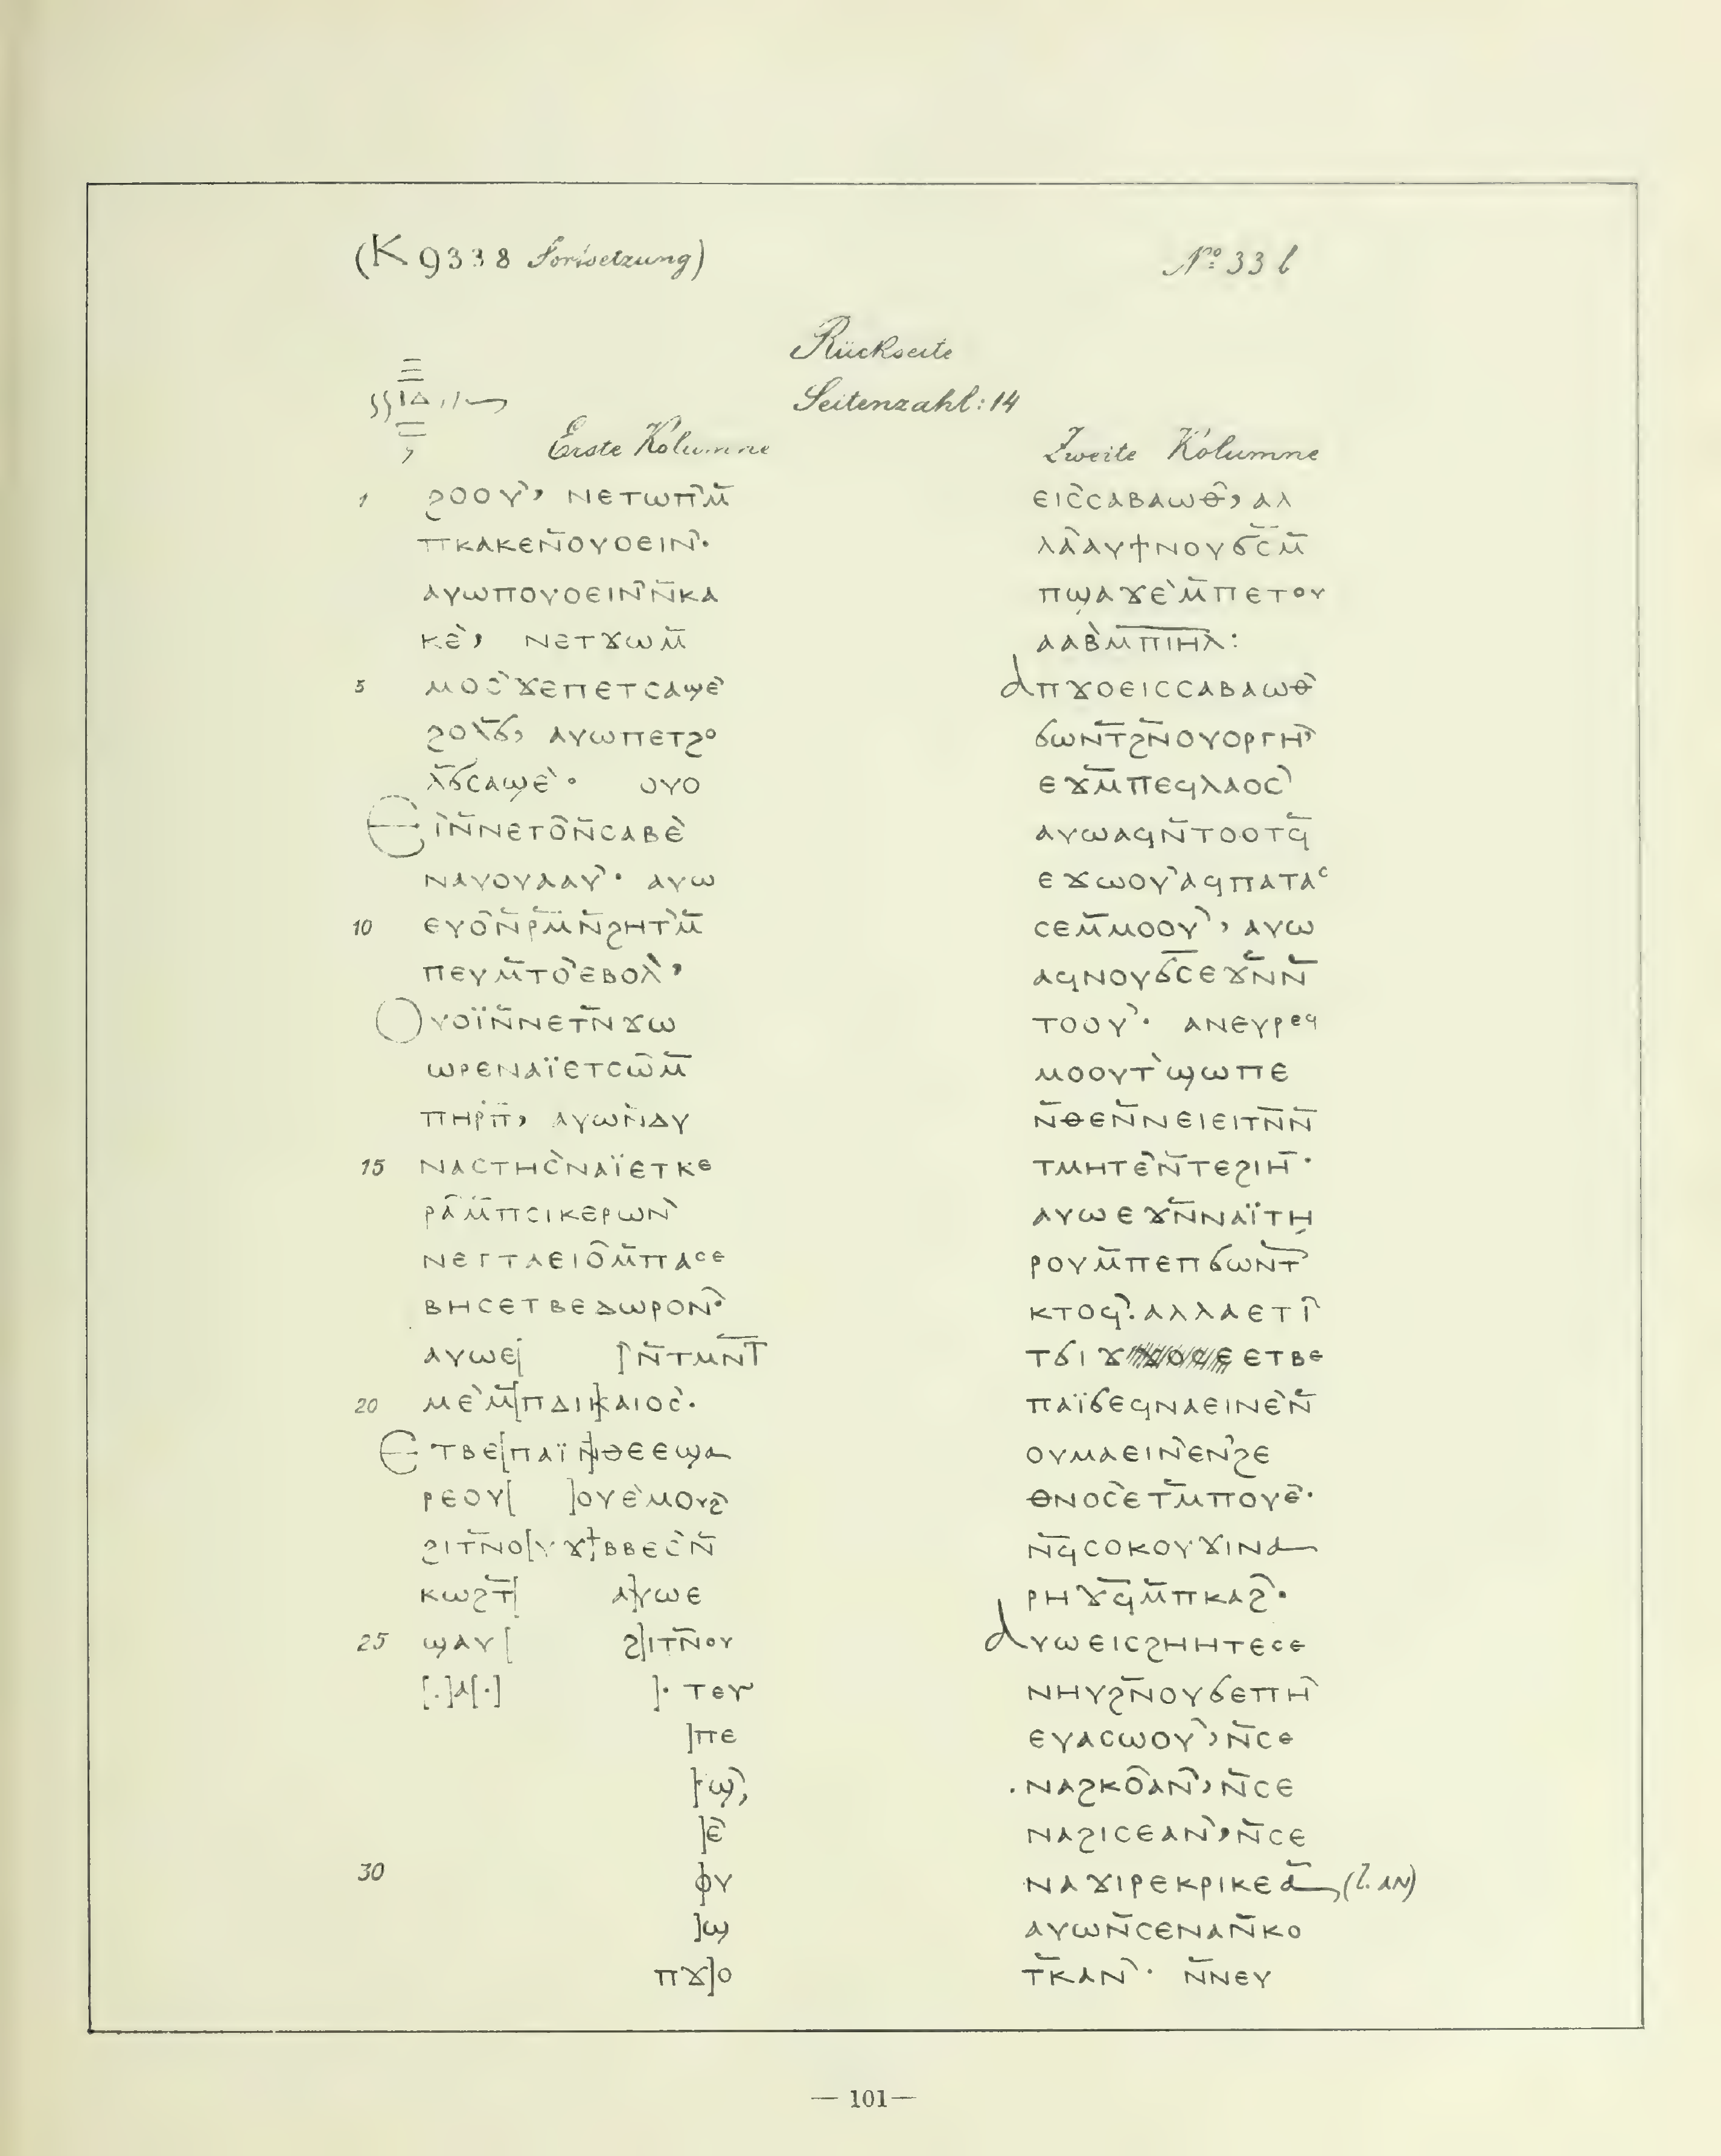 (K 9338 Fortsetzung)
Nº 33 b
Rückseite
Seitenzahl: 14
ⲓⲇ
Erste Kolumne
1 ϩⲟⲟⲩ̀, ⲛⲉⲧⲱⲡ̀ⲙ̄
ⲡⲕⲁⲕⲉⲛ̄ⲟⲩⲟⲉⲓⲛ̀·
ⲁⲩⲱⲡⲟⲩⲟⲉⲓⲛ̀ⲛ̄ⲕⲁ
ⲕⲉ̀, ⲛⲉⲧϫⲱⲙ̄
5 ⲙⲟⲥ̀ϫⲉⲡⲉⲧⲥⲁϣⲉ̀
ϩⲟⲗ̄ϭ, ⲁⲩⲱⲡⲉⲧϩⲟ
ⲗ̄ϭⲥⲁϣⲉ̀· ⲟⲩⲟ
Ⲉⲓ̀ⲛ̄ⲛⲉⲧⲟ̂ⲛ̄ⲥⲁⲃⲉ̀
ⲛⲁⲩⲟⲩⲁⲁⲩ̀· ⲁⲩⲱ
10 ⲉⲩⲟ̂ⲛ̄ⲣⲙ̄ⲛ̄ϩⲏⲧ̀ⲙ̄
ⲡⲉⲩⲙ̄ⲧⲟ̀ⲉⲃⲟⲗ̀,
Ⲟⲩⲟⲓ̈ⲛ̄ⲛⲉⲧⲛ̄ϫⲱ
ⲱⲣⲉⲛⲁⲓ̈ⲉⲧⲥⲱ̂ⲙ̄
ⲡⲏⲣⲡ̄, ⲁⲩⲱⲛ̀ⲇⲩ
15 ⲛⲁⲥⲧⲏⲥ̀ⲛⲁⲓ̈ⲉⲧⲕⲉ
ⲣⲁ̂ⲙ̄ⲡⲥⲓⲕⲉⲣⲱⲛ̀
ⲛⲉⲧⲧⲁⲉⲓⲟ̂ⲙ̄ⲡⲁⲥⲉ
ⲃⲏⲥⲉⲧⲃⲉⲇⲱⲣⲟⲛ̀·
ⲁⲩⲱⲉ[ ]ⲛ̄ⲧⲙⲛ̄ⲧ
20 ⲙⲉ̀ⲙ̄[ⲡⲇⲓ]ⲕⲁⲓⲟⲥ̀·
Ⲉⲧⲃⲉ[ⲡⲁⲓ̈ⲛ̄]ⲑⲉⲉϣⲁ
ⲣⲉⲟⲩ[ ]ⲟⲩⲉ̀ⲙⲟⲩϩ̀
ϩⲓⲧⲛ̄ⲟ[ⲩϫ]ⲃⲃⲉⲥ̀ⲛ̄
ⲕⲱϩⲧ̄[ ⲁ]ⲩⲱⲉ
25 ϣⲁⲩ[ ϩ]ⲓⲧⲛ̄ⲟⲩ
[.]ⲁ[.] ]· ⲧⲉⲩ
]ⲡⲉ
]ϣ̀,
]ⲉ̀
30 ]ⲟⲩ
]ϣ
ⲡϫ]ⲟ
Zweite Kolumne
ⲉⲓⲥ̀ⲥⲁⲃⲁⲱⲑ̀, ⲁⲗ
ⲗⲁ̂ⲁⲩϯⲛⲟⲩϭⲥ̄ⲙ̄
ⲡϣⲁϫⲉ̀ⲙ̄ⲡⲉⲧⲟⲩ
ⲁⲁⲃ̀ⲙ̄ⲡⲓⲏⲗ:
ⲁⲡϫⲟⲉⲓⲥⲥⲁⲃⲁⲱⲑ̀
ϭⲱⲛ̄ⲧϩⲛ̄ⲟⲩⲟⲣⲅⲏ̀
ⲉϫⲙ̄ⲡⲉϥⲗⲁⲟⲥ̀
ⲁⲩⲱⲁϥⲛ̄ⲧⲟⲟⲧϥ̄
ⲉϫⲱⲟⲩ̀ⲁϥⲡⲁⲧⲁⲥ
ⲥⲉⲙ̄ⲙⲟⲟⲩ̀, ⲁⲩⲱ
ⲁϥⲛⲟⲩϭⲥ̄ⲉϫⲛ̄ⲛ̄
ⲧⲟⲟⲩ̀· ⲁⲛⲉⲩⲣⲉϥ
ⲙⲟⲟⲩⲧ̀ϣⲱⲡⲉ
ⲛ̄ⲑⲉⲛ̄ⲛⲉⲓⲉⲓⲧⲛ̄ⲛ̄
ⲧⲙⲏⲧⲉ̀ⲛ̄ⲧⲉϩⲓⲏ̀·
ⲁⲩⲱⲉϫⲛ̄ⲛⲁⲓ̈ⲧⲏ
ⲣⲟⲩⲙ̄ⲡⲉⲡϭⲱⲛ̄ⲧ̀
ⲕⲧⲟϥ̀. ⲁⲗⲗⲁⲉⲧⲓ̀
ⲧϭⲓϫ ⲉⲧⲃⲉ
ⲡⲁⲓ̈ϭⲉϥⲛⲁⲉⲓⲛⲉ̀ⲛ̄
ⲟⲩⲙⲁⲉⲓⲛ̀ⲉⲛ̀ϩⲉ
ⲑⲛⲟⲥ̀ⲉⲧⲙ̄ⲡⲟⲩⲉ̂·
ⲛ̄ϥⲥⲟⲕⲟⲩϫⲓⲛⲁ
ⲣⲏϫϥ̄ⲙ̄ⲡⲕⲁϩ̀·
ⲁⲩⲱⲉⲓⲥϩⲏⲏⲧⲉⲥⲉ
ⲛⲏⲩϩⲛ̄ⲟⲩϭⲉⲡⲏ̀
ⲉⲩⲁⲥⲱⲟⲩ̀,ⲛ̄ⲥⲉ
·ⲛⲁϩⲕⲟ̂ⲁⲛ̀,ⲛ̄ⲥⲉ
ⲛⲁϩⲓⲥⲉⲁⲛ̀,ⲛ̄ⲥⲉ
ⲛⲁϫⲓⲣⲉⲕⲣⲓⲕⲉⲁ̄ (l. ⲁⲛ)
ⲁⲩⲱⲛ̄ⲥⲉⲛⲁⲛ̄ⲕⲟ
ⲧ̄ⲕⲁⲛ̀· ⲛ̄ⲛⲉⲩ
— 101 —